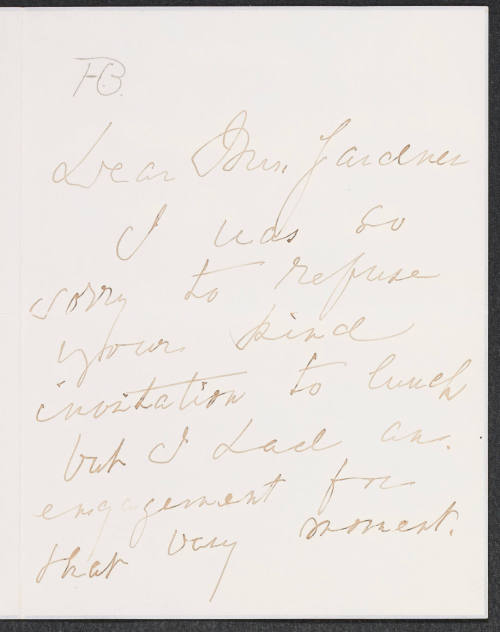 F.B.
Dear Mrs. Gardner
I was so
sorry to refuse
your kind
invitation to lunch
but I had an
engagement for
that very moment.